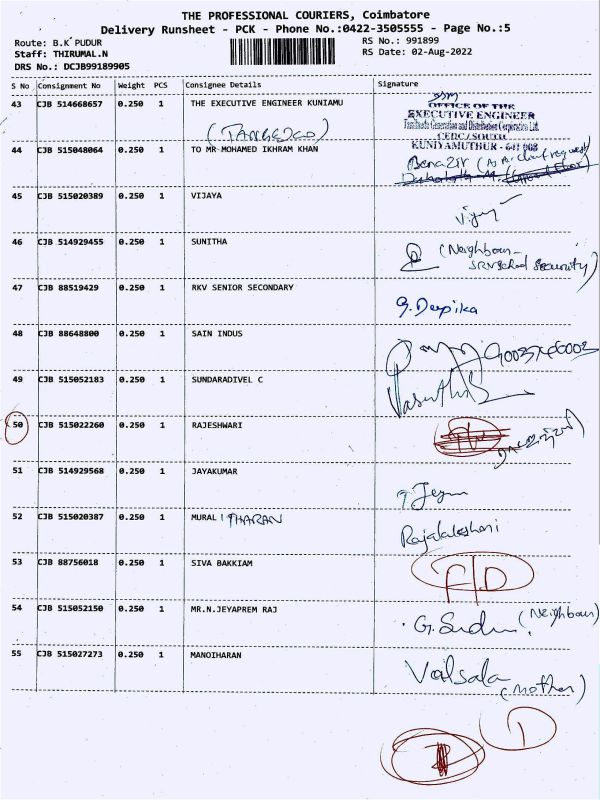 THE PROFESSIONAL COURIERS, Coimbatore
Delivery Runsheet - PCK - Phone No.:0422-3505555 - Page No.:5
Route: B.K PUDUR RS No.: 991899
Staff: THIRUMAL.N RS Date: 02-Aug-2022
DRS No.: DCJB99189905
S No Consignment No Weight PCS Consignee Details Signature
43 CJB 514668657 0.250 1 THE EXECUTIVE ENGINEER KUNIAMU
(TANGEDCO)
OFFICE OF THE
EXECUTIVE ENGINEER
Tamilnadu Generation and Distribution Corporation Ltd.
CEDC/SOUTH
KUNIYAMUTHUR - 641 008
44 CJB 515048064 0.250 1 TO MR MOHAMED IKHRAM KHAN
45 CJB 515020389 0.250 1 VIJAYA
46 CJB 514929455 0.250 1 SUNITHA (Neighbour-
Security)
47 CJB 88519429 0.250 1 RKV SENIOR SECONDARY G. Deepika
48 CJB 88648800 0.250 1 SAIN INDUS
49 CJB 515052183 0.250 1 SUNDARADIVEL C
50 CJB 515022260 0.250 1 RAJESHWARI
51 CJB 514929568 0.250 1 JAYAKUMAR
52 CJB 515020387 0.250 1 MURALITHARAN Rajalakshmi
53 CJB 88756018 0.250 1 SIVA BAKKIAM
54 CJB 515052150 0.250 1 MR.N.JEYAPREM RAJ (Neighbour)
55 CJB 515027273 0.250 1 MANOIHARAN Valsala
(mother)